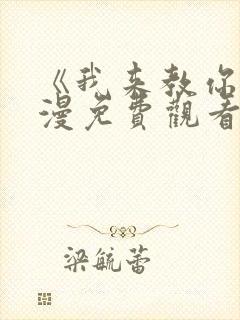 《我来教你
漫免費觀看
梁毓蕾